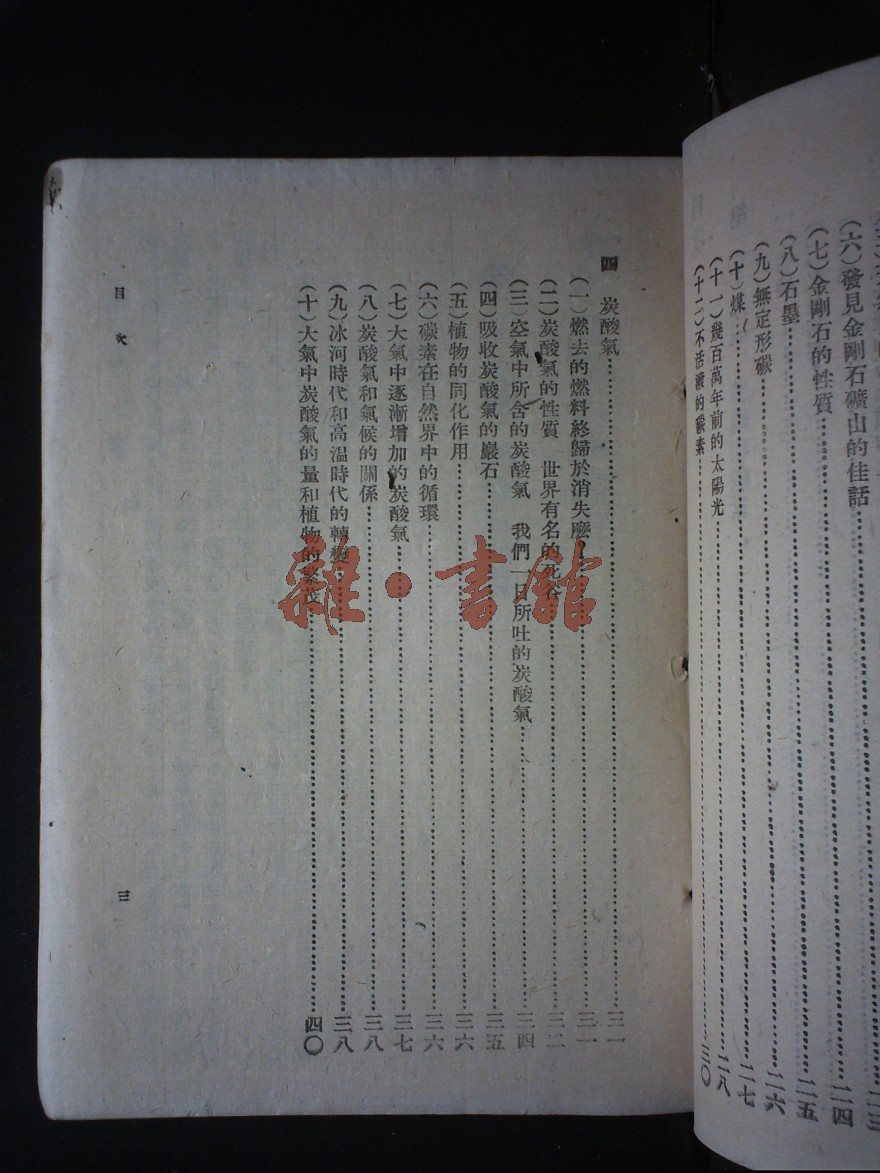 (六)發見金剛石礦山的佳話……二四
(七)金剛石的性質……二五
(八)石墨……二六
(九)無定形碳……二七
(十)煤……二八
(十一)幾百萬年前的太陽光
(十二)不活潑的碳素……三〇
四 炭酸氣……三一
(一)燃去的燃料終歸於消失麼?……三一
(二)炭酸氣的性質 世界有名的死谷……三二
(三)空氣中所含的炭酸氣 我們一日所吐的炭酸氣……三四
(四)吸收炭酸氣的巖石……三五
(五)植物的同化作用……三六
(六)碳素在自然界中的循環……三六
(七)大氣中逐漸增加的炭酸氣……三七
(八)炭酸氣和氣候的關係……三八
(九)冰河時代和高溫時代的轉變……三八
(十)大氣中炭酸氣的量和植物的……四〇
目次
三
雜·書館